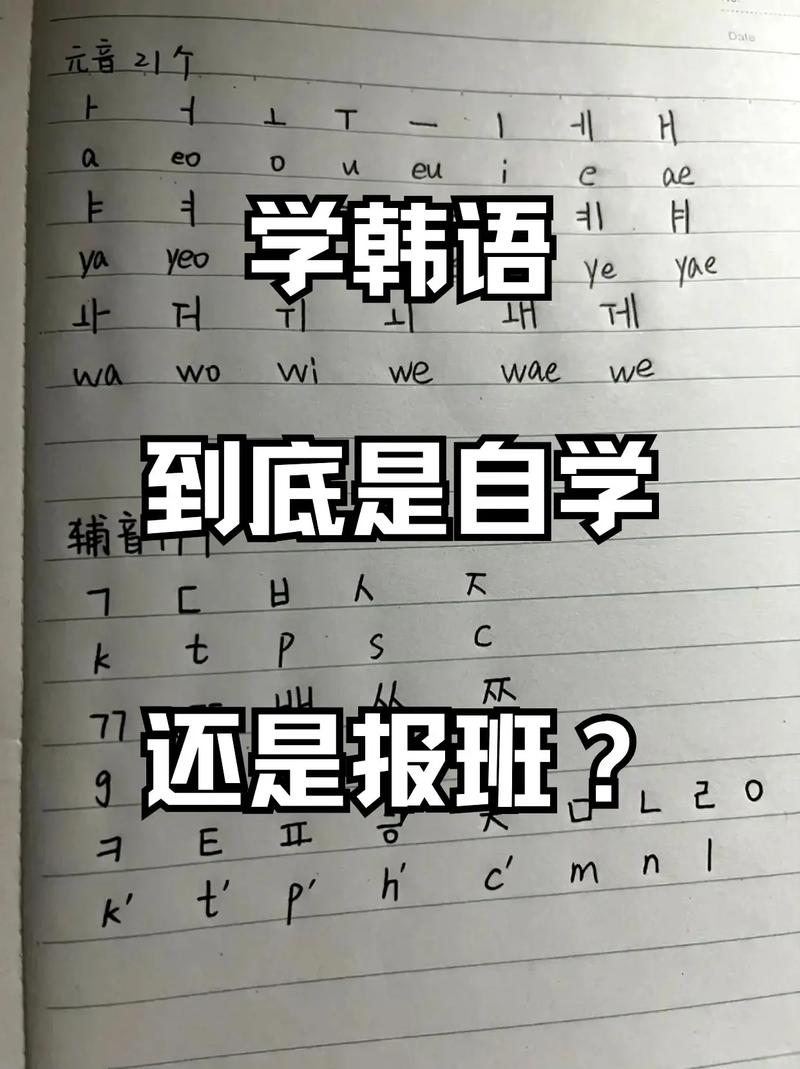 Date
元音 21个
ㅏ ㅓ ㅗ ㅜ ㅡ ㅣ ㅔ ㅐ
a eo o u eu i e ae
ㅑ ㅕ ㅖ ㅒ
学韩语
ya yeo ye yae
ㅘ ㅝ ㅟ ㅚ ㅙ ㅞ
wa wo wi we wae we
到底是自学
辅音
ㄱ ㄷ ㅂ ㅅ ㅈ
k t p s c
ㄲ ㅃ ㅆ ㅉ
还是报班？
g
ㅋ ㅌ ㅍ ㅎ ㅊ ㅁ ㄴ ㄹ ㅇ
k' t' p' h' c' m n l